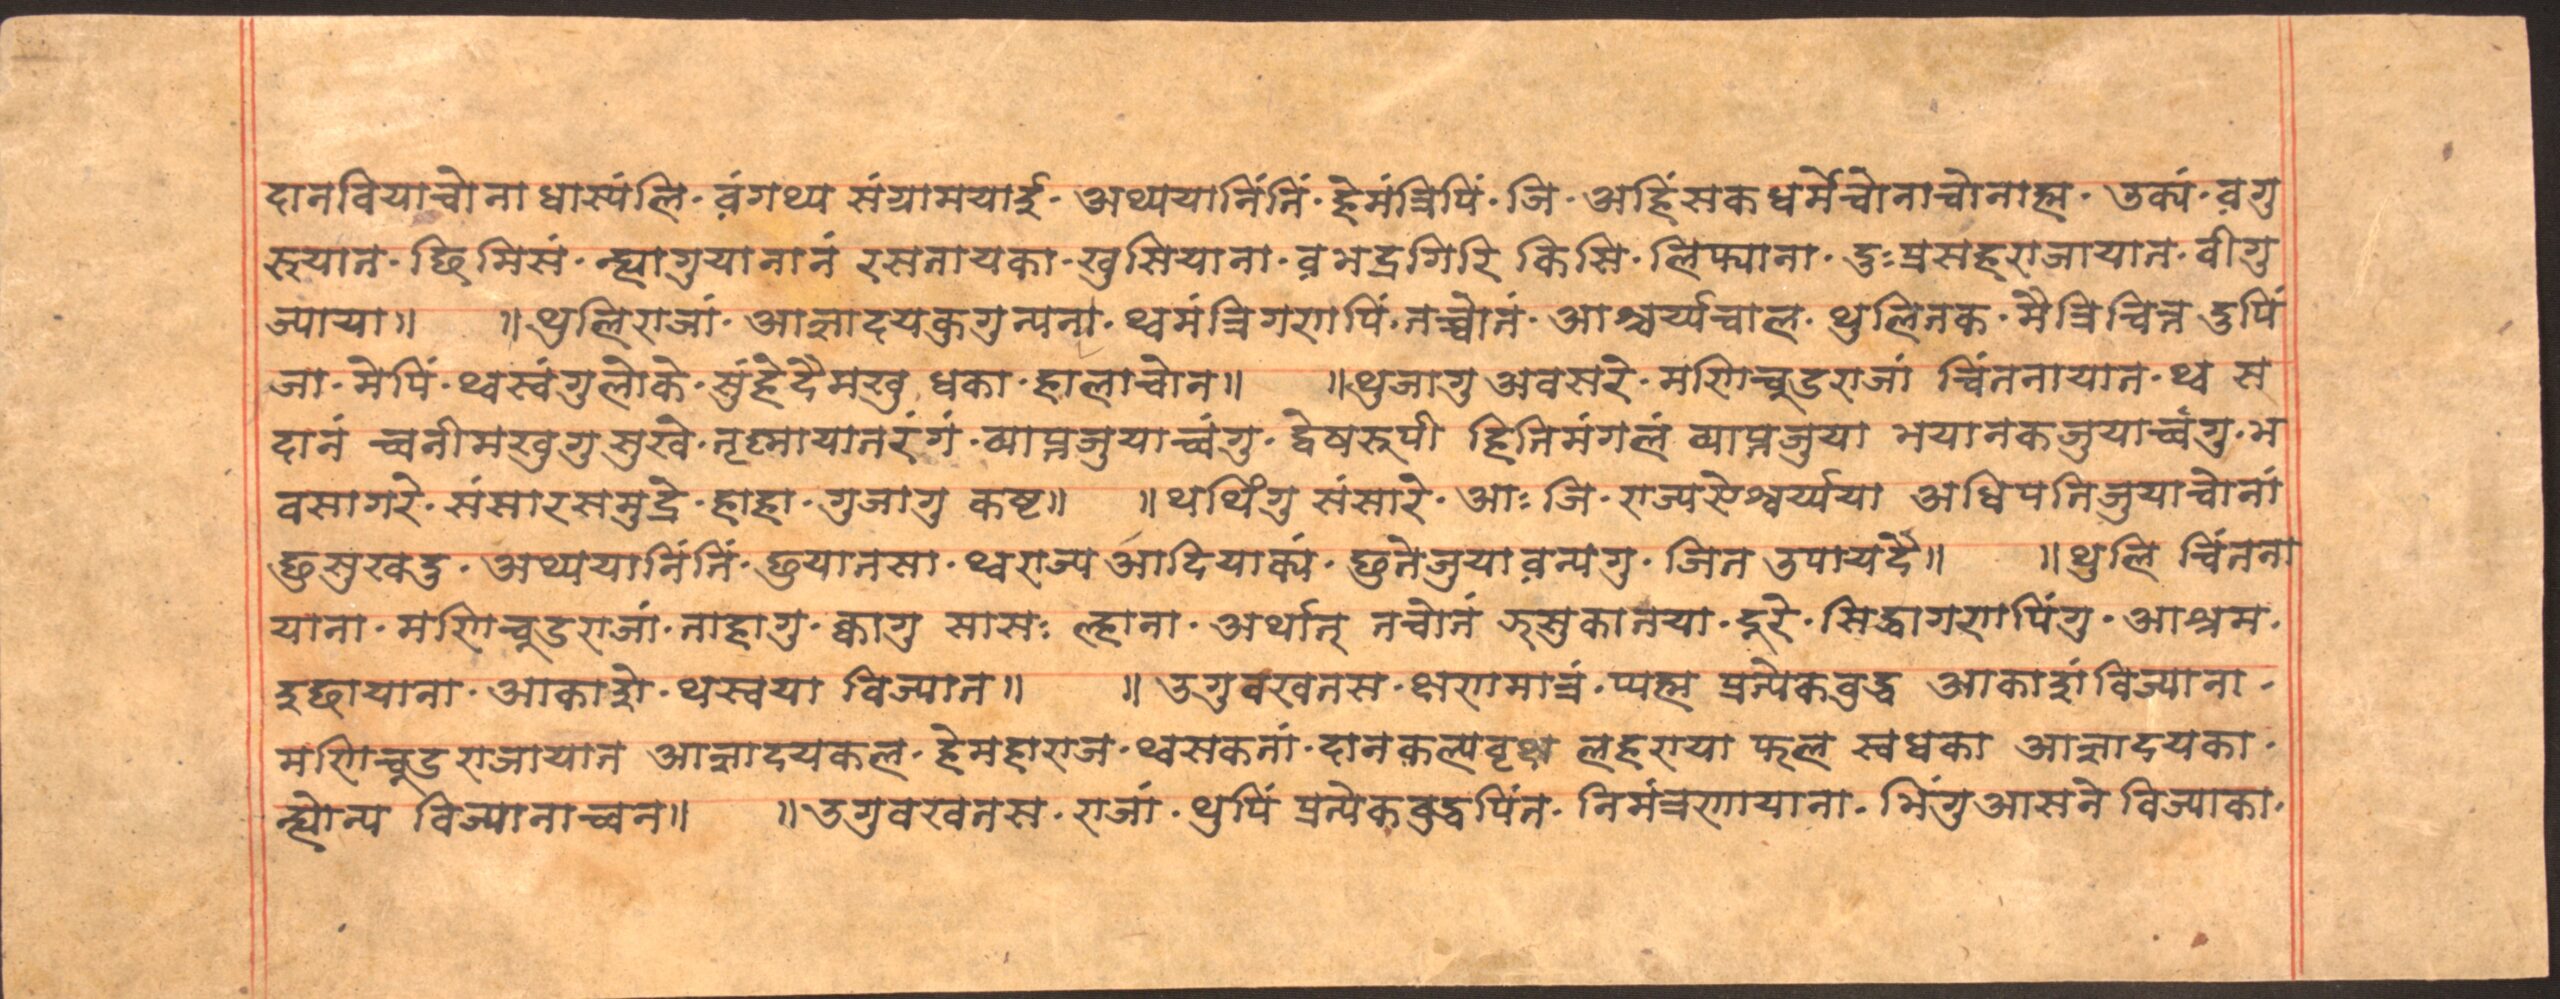 दानवियाचोना धास्यंलि· व़ंगथ्य संग्रामयाई· अथ्ययानिंनिं· हेमंत्रिपिं· जि· अहिंसक धर्मे चोनाचोनाह्म· उक्यं· व़गु
रूयात· छि मिसं· न्ह्यागुयानानं रसतायका· खुसियाना· व़भद्रगिरि किसि· लिफ्याना· दुःप्रसहराजायात· वीगु
ज्याया॥ ॥थुलिराजां· आज्ञादयकुगुन्यना· थ्वमंत्रिगणपिं·तच्वोतं· आश्चर्य्यचाल· थुलितक· मैत्रिचित्त दुपिं
जा· मेपिं· थ्वस्वंगुलोके· सुंहे दैमखु धका· हालाचोन॥ ॥थुजागु अवसरे· मणिचूडराजां चिंतनायात· थ्व स
दानं च्वनीमखुगु सुखे· तृष्णायातरंगं· व्याप्तजुयाच्वंगु· द्वेषरूपी हितिमंगलं व्याप्तजुया भयानकजुयाच्वंगु· भ
वसागरे· संसारसमुद्रे· हाहा· गुजागु कष्ट॥ ॥थथिंगु संसारे· आः जि· राज्यऐश्वर्य्यया अधिपतिजुयाचोनां
छुसुखदु· अथ्ययानिंनिं· छुयातसा· थ्वराज्य आदियाक्यं· छुतेजुयाव़न्यगु· जित उपायदै॥ ॥थुलि चिंतना
याना· मणिचूडराजां· ताहागु· क्वागु सासः ल्हाना· अर्थात् तचोतं झसुकातया· दूरे· सिद्धागणपिंगु· आश्रम·
इछायाना· आकाशे· थस्वया विज्यात॥ ॥ उगुवखतस· क्षणमात्रं· प्यह्म प्रत्येकबुद्ध आकाशं विज्याना·
मणिचूड राजायात आज्ञादयकल· हेमहाराज· थ्वसकतां· दानकल्पवृक्ष लहरया फल स्वधका आज्ञादयका·
न्ह्योन्य विज्यानाच्वन॥ ॥उगुवखतस· राजां· थुपिं प्रत्येकबुद्धपिंत· निमंत्रणायाना· भिंगुआसने विज्याका·